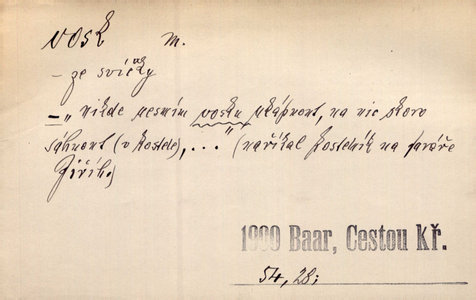 vosk m.
– ze svíčky
– „nikde nesmím vosku ukápnout, na nic skoro
sáhnout (v kostele), ..." (naříkal kostelník na faráře
Jiřího)
1900 Baar, Cestou kř.
54, 28;